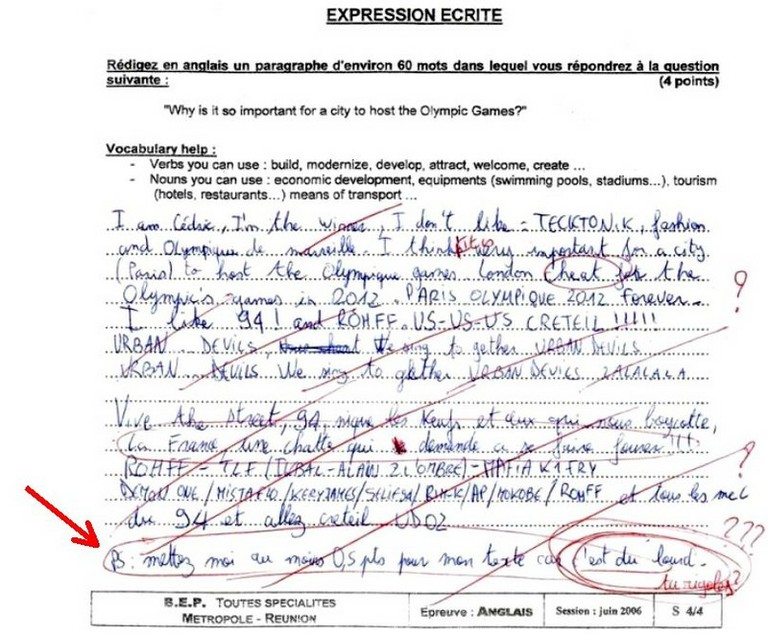 EXPRESSION ECRITE
Rédigez en anglais un paragraphe d'environ 60 mots dans lequel vous répondrez à la question
suivante : (4 points)
"Why is it so important for a city to host the Olympic Games?"
Vocabulary help :
- Verbs you can use : build, modernize, develop, attract, welcome, create ...
- Nouns you can use : economic development, equipments (swimming pools, stadiums...), tourism
(hotels, restaurants...) means of transport ...
I am Cédric, I'm the winner, I don't like = TECKTONIK, fashion
and Olympique de marseille. I think it is very important for a city
(Paris) to host the Olympique games. london cheat for the
Olympic's games in 2012. PARIS OLYMPIQUE 2012 Forever
I like 94! and ROHFF. US-US-US CRETEIL !!!!!
URBAN DEVILS, We sing to gether URBAN DEVILS
URBAN DEVILS We sing to gether URBAN DEVILS LALALALA
?
Vive the street, 94, nique les Keufs et eux qui nous boycotte,
La France une chatte qui demande a se faire fourer !!!!
ROHFF - TLF (IKBAL-ALAIN 2 L'OMBRE) - MAFIA K1FRY
DEMON ONE / MISTA FLO / KERY JAMES / SELIFSA / RIM-K / AP / MOKOBE / ROHFF et tous les mec
du 94 et allez creteil UDO2
?
???
PS : mettez moi au moins 0,5 pts pour mon texte car c'est du lourd.
tu rigoles?
B.E.P. TOUTES SPECIALITES
METROPOLE - REUNION
Epreuve : ANGLAIS
Session : juin 2006
S 4/4